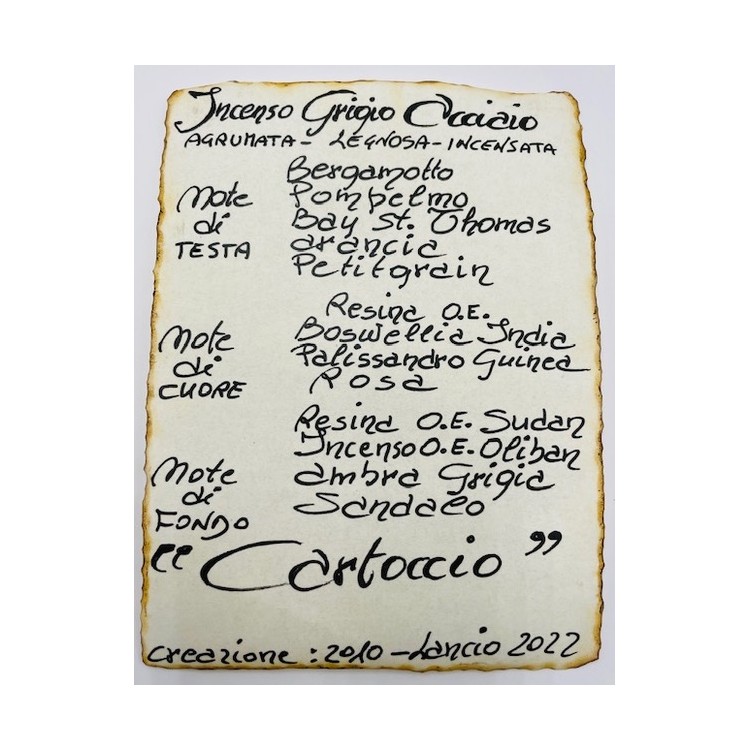 Incenso Grigio Acciaio
AGRUMATA - LEGNOSA - INCENSATA
Note di TESTA
Bergamotto
Pompelmo
Bay St. Thomas
arancia
Petitgrain
Note di CUORE
Resina O.E.
Boswellia India
Palissandro Guinea
Rosa
Note di FONDO
Resina O.E. Sudan
Incenso O.E. Oliban
ambra Grigia
Sandalo
“Cartoccio”
creazione : 2010 - Lancio 2022